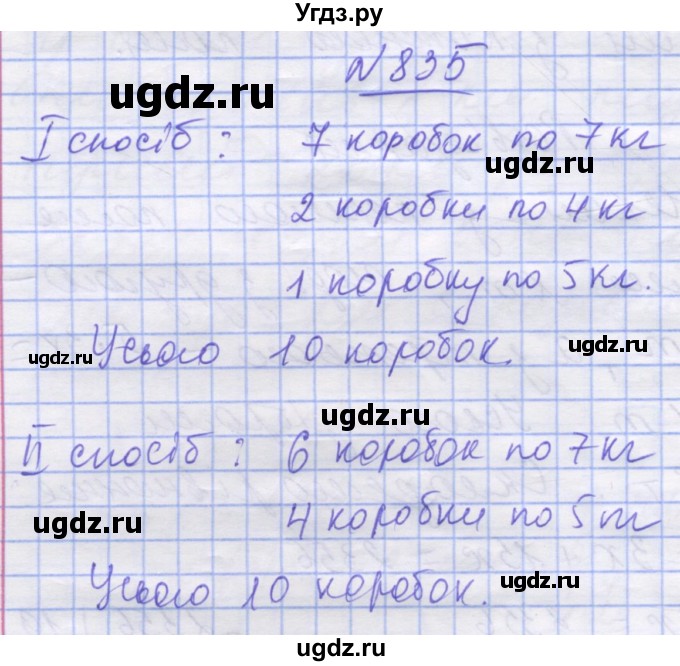 Угдз.ру
№ 835
ugdz.ru
I спосіб: 7 коробок по 7 кг
ugdz.ru
2 коробки по 4 кг
1 коробку по 5 кг.
ugdz.ru Усього 10 коробок. ugdz.ru
ugdz.ru
II спосіб: 6 коробок по 7 кг
ugdz.ru 4 коробки по 5 т
Усього 10 коробок. ugdz.ru
ugdz.ru